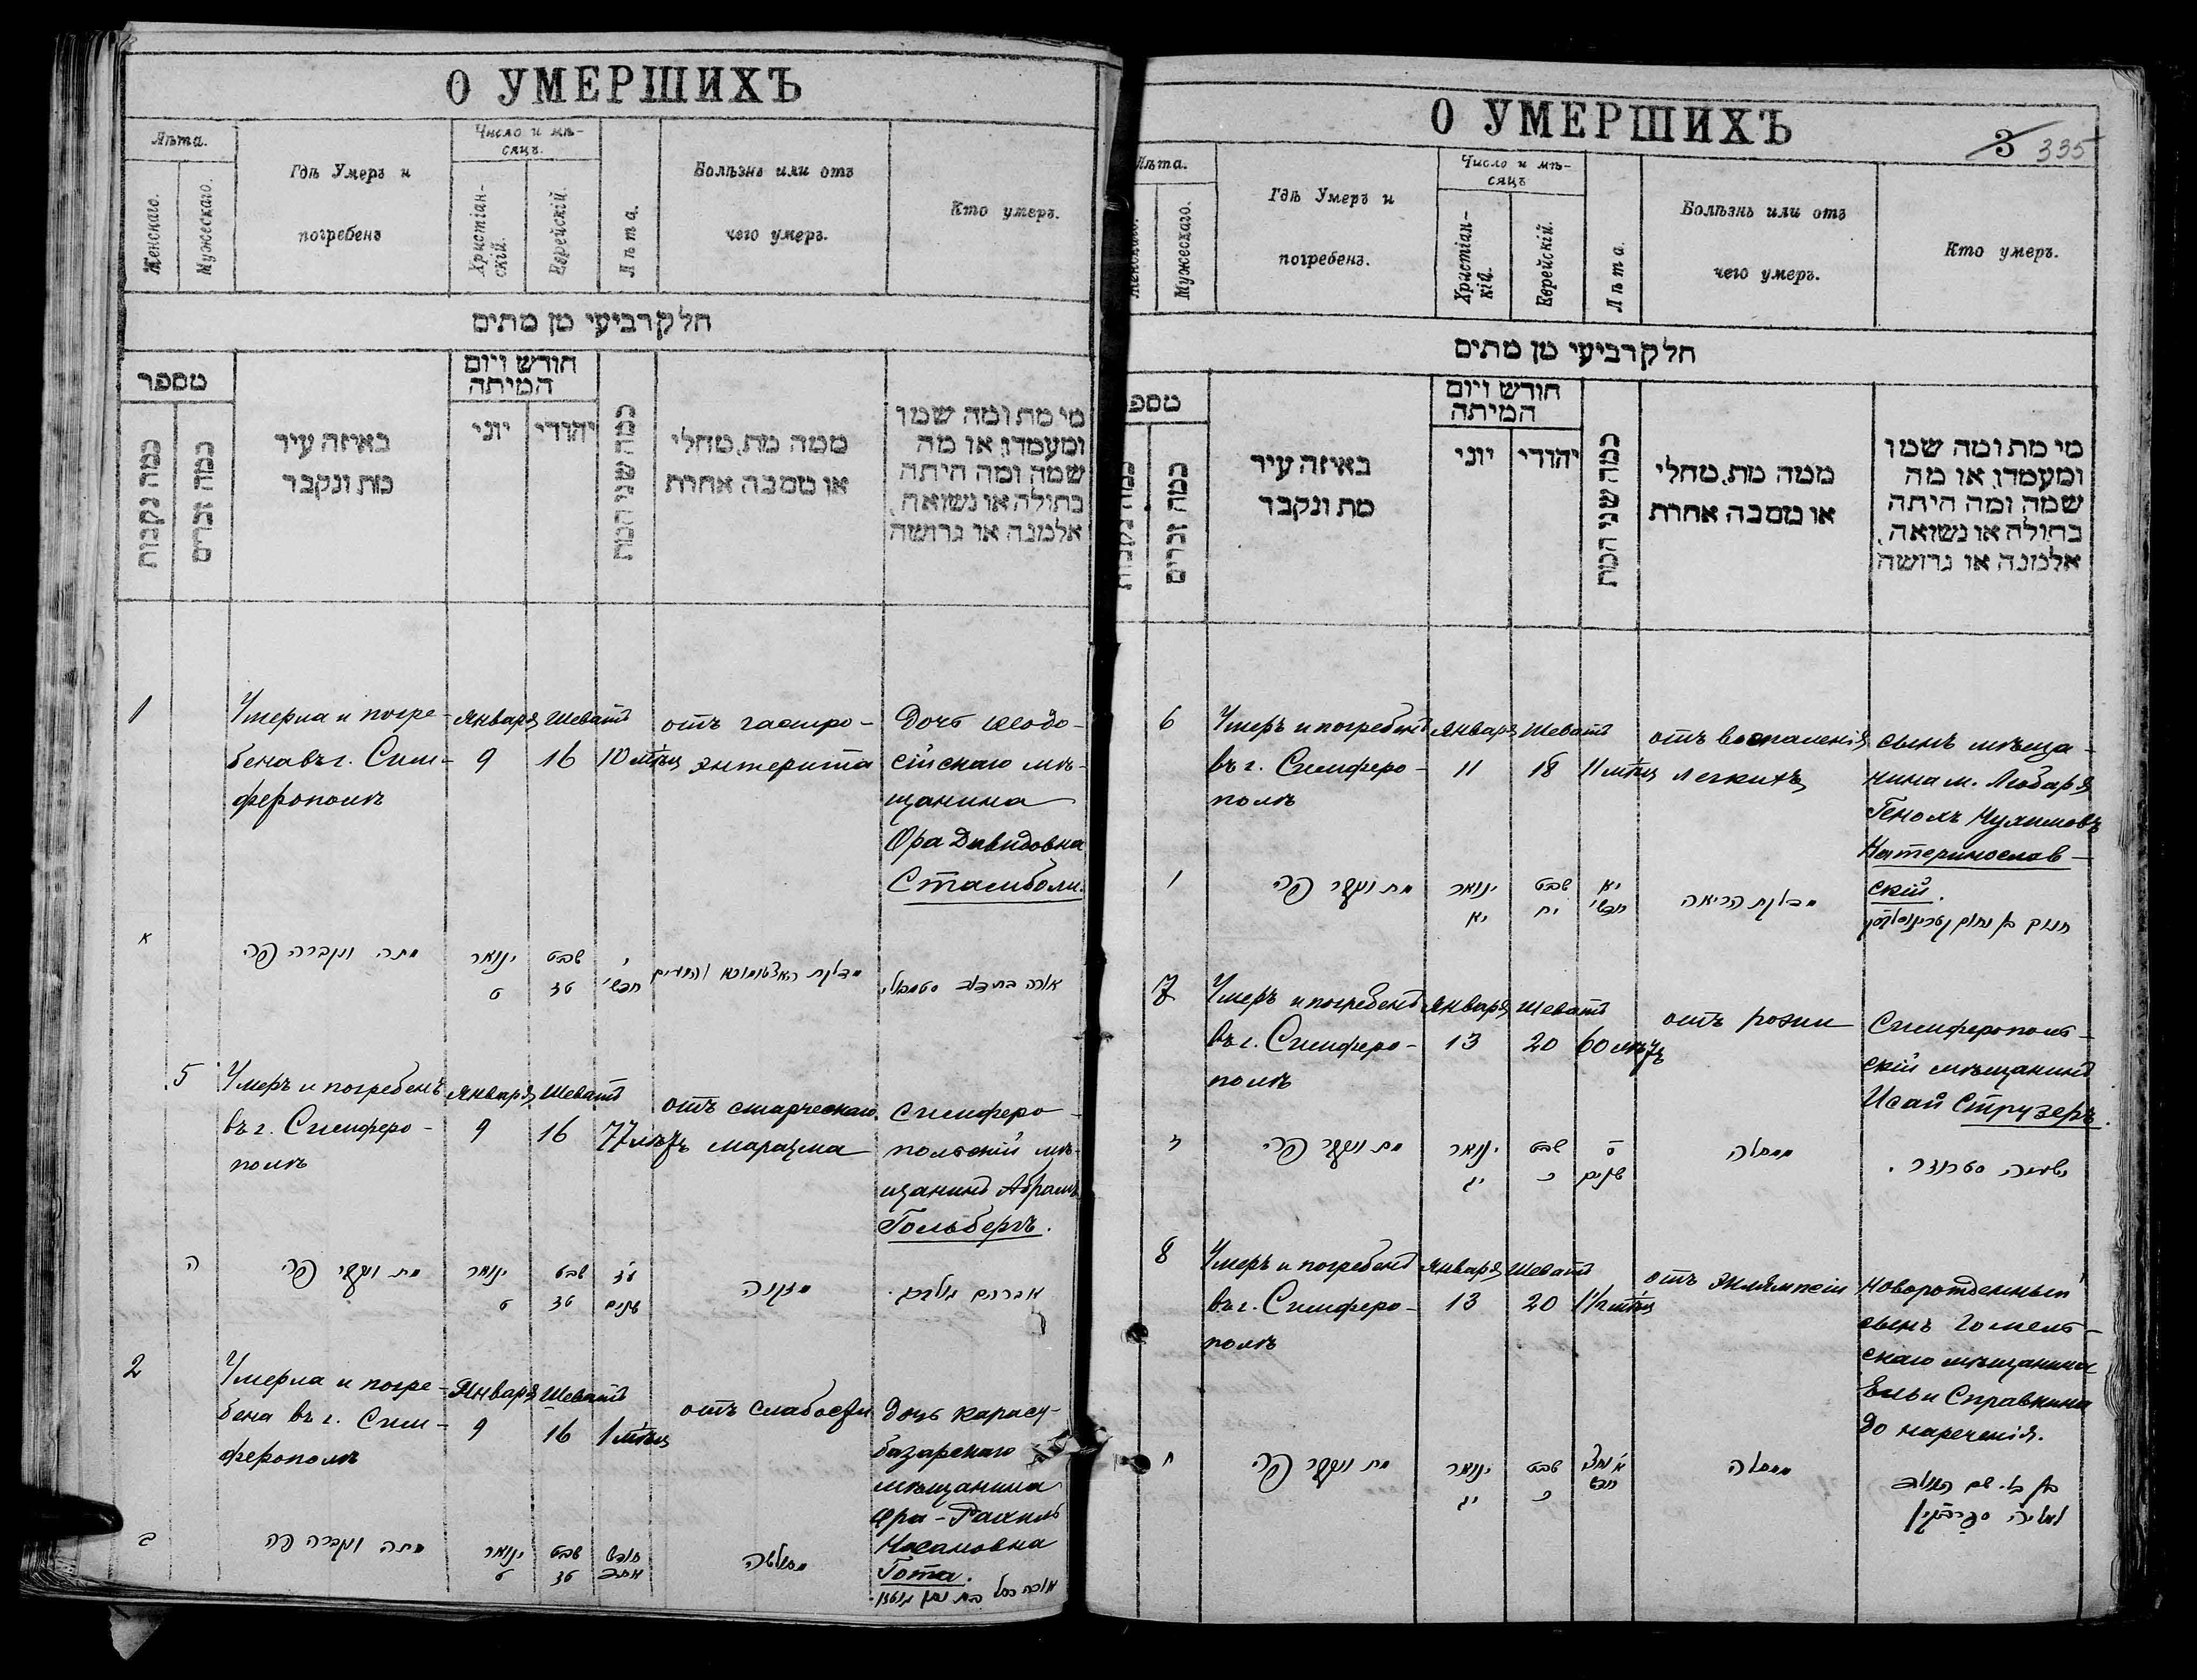 О УМЕРШИХЪ
Лѣта.
Женскаго.
Мужескаго.
Гдѣ Умеръ и
погребенъ
Число и мѣ-
сяцъ.
Христіан-
скій.
Еврейскій.
Лѣта.
Болѣзнь или отъ
чего умеръ.
Кто умеръ.
חלק רביעי מן מתים
מספר
כמה נקבות
כמה זכרים
באיזה עיר
מת ונקבר
חודש ויום
המיתה
יוני
יהודי
כמה שני המת
ממה מת, מחלי
או מסבה אחרת
מי מת ומה שמו
ומעמדו, או מה
שמה ומה היתה
בתולה או נשואה,
אלמנה או גרושה
1
Умерла и погре-
бена въ г. Сим-
ферополѣ
Января
9
Шеватъ
16
10 мѣсц
отъ гастро-
энтерита
Дочь Ѳеодо-
сійскаго мѣ-
щанина
Ора Давидовна
Стамболи.
א
מתה ונקברה פה
ינואר
ט
שבט
טז
י
חדשי
אורה בת דוד סטמבולי
5
Умеръ и погребенъ
въ г. Симферо-
полѣ
Января
9
Шеватъ
16
77 лѣтъ
отъ старческаго
маразма
Симферо-
польскій мѣ-
щанинъ Абрамъ
Гольбергъ.
ה
מת ונקבר פה
ינואר
ט
שבט
טז
עז
שנים
מזקנה
אברהם גולברג.
2
Умерла и погре-
бена въ г. Сим-
ферополѣ
Января
9
Шеватъ
16
1 мѣсц
отъ слабости
Дочь карасу-
базарскаго
мѣщанина
Ора-Рахиль
Насановна
Гота.
ב
מתה ונקברה פה
ינואר
ט
שבט
טז
חודש
אחד
מחולשה
אורה רחל בת נתן
О УМЕРШИХЪ
3 335
Лѣта.
Женскаго.
Мужескаго.
Гдѣ Умеръ и
погребенъ.
Число и мѣ-
сяцъ
Христіан-
кій.
Еврейскій.
Лѣта.
Болѣзнь или отъ
чего умеръ.
Кто умеръ.
חלק רביעי מן מתים
מספ
כמה נקבות
כמה זכרים
באיזה עיר
מת ונקבר
חודש ויום
המיתה
יוני
יהודי
כמה שני המת
ממה מת, מחלי
או מסבה אחרת
מי מת ומה שמו
ומעמדו, או מה
שמה ומה היתה
בתולה או נשואה,
אלמנה או גרושה
6
Умеръ и погребенъ
въ г. Симферо-
полѣ
Января
11
Шеватъ
18
11 мѣсц
отъ воспаленія
легкихъ
сынъ мѣща-
нина м. Любаря
Генохъ Нухимовъ
Катеринослав-
скій.
ו
מת ונקבר פה
ינואר
יא
שבט
יח
יא
חדשי
מדלקת הריאה
חנוך בן נחום קטרינוסלבסקי
7
Умеръ и погребенъ
въ г. Симферо-
полѣ
Января
13
Шеватъ
20
60 лѣтъ
отъ рожи
Симферополь-
скій мѣщанинъ
Исай Струзеръ.
ז
מת ונקבר פה
ינואר
יג
שבט
כ
ס
שנים
ממחלה
ישעיה סטרוזר.
8
Умеръ и погребенъ
въ г. Симферо-
полѣ
Января
13
Шеватъ
20
1 1/2 мѣсц
отъ эклямпсіи
Новорожденный
сынъ Гомель-
скаго мѣщанина
Ельи Справкина
до нареченія.
ח
מת ונקבר פה
ינואר
יג
שבט
כ
חדש
ממחלה
בן בלי שם הנולד